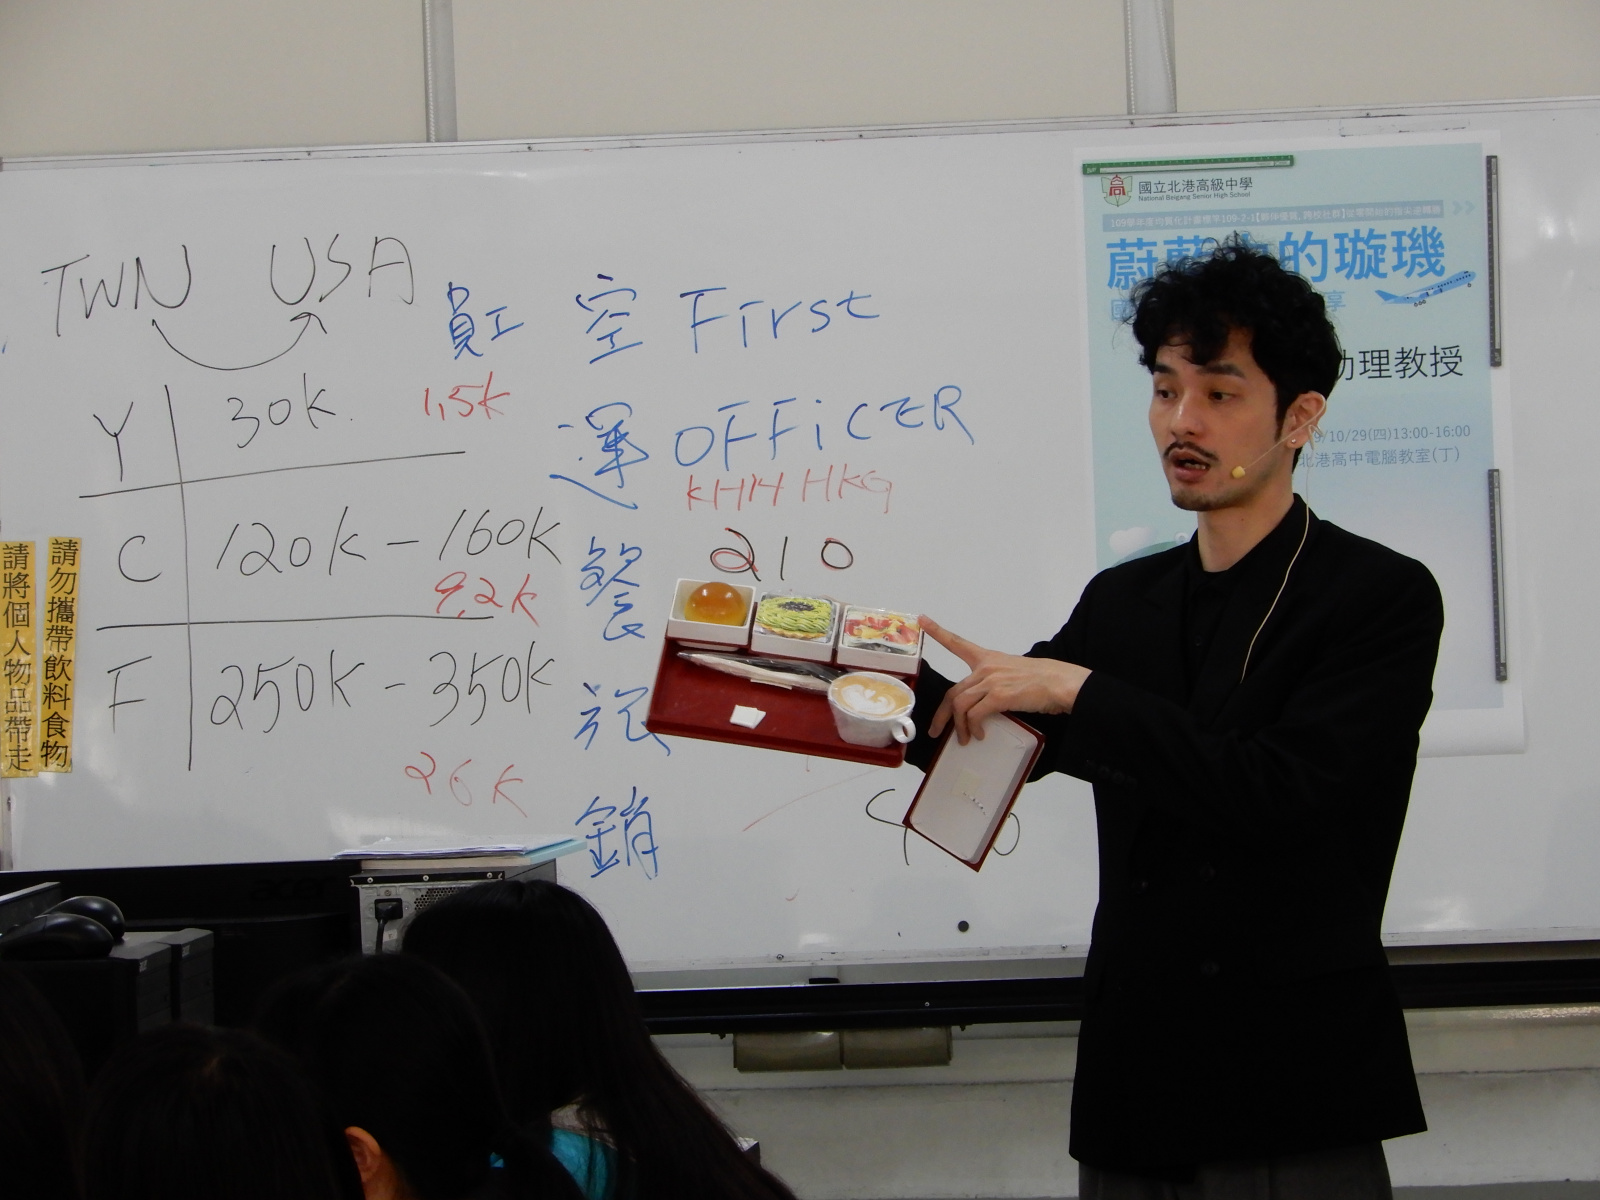 TWN USA
員工
Y 30K 1.5K
C 120K - 160K
9.2K
F 250K - 350K
26K
空
運
餐
旅
銷
First
OFFiCER
KHH HKG
210
請將個人物品帶走
請勿攜帶飲料食物
國立北港高級中學
National Beigang Senior High School
109學年度均質化計畫
蔚藍 的璇璣
國 享
助理教授
9/10/29(四)13:00-16:00
北港高中電腦教室(丁)
acer